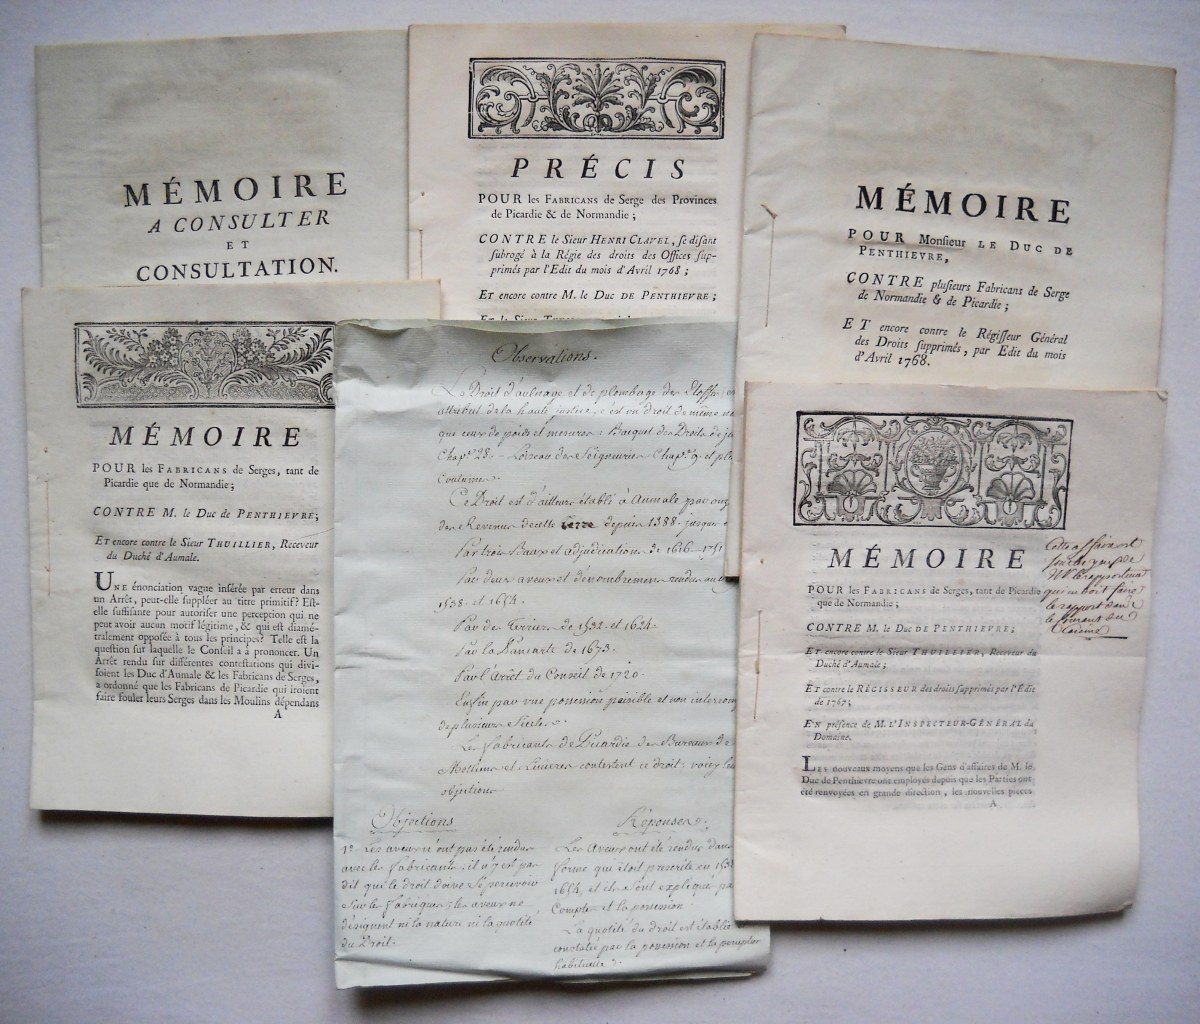 MÉMOIRE
A CONSULTER
ET
CONSULTATION.
PRÉCIS
POUR les FABRICANS de Serge des Provinces
de Picardie & de Normandie ;
CONTRE le Sieur HENRI CLAVEL, se disant
subrogé à la Régie des droits des Offices sup-
primés par l'Edit du mois d'Avril 1768 ;
ET encore contre M. le Duc DE PENTHIEVRE ;
MÉMOIRE
POUR Monsieur LE DUC DE
PENTHIEVRE,
CONTRE plusieurs Fabricans de Serge
de Normandie & de Picardie ;
ET encore contre le Régisseur Général
des Droits supprimés, par Edit du mois
d'Avril 1768.
MÉMOIRE
POUR les FABRICANS de Serges, tant de
Picardie que de Normandie ;
CONTRE M. le Duc de PENTHIEVRE ;
ET encore contre le Sieur THUILLIER, Receveur
du Duché d'Aumale.
UNE énonciation vague insérée par erreur dans
un Arrêt, peut-elle suppléer au titre primitif ? Est-
elle suffisante pour autoriser une perception qui ne
peut avoir aucun motif légitime, & qui est diamé-
tralement opposée à tous les principes ? Telle est la
question sur laquelle le Conseil a à prononcer. Un
Arrêt rendu sur différentes contestations qui divi-
soient les Duc d'Aumale & les Fabricans de Serges,
a ordonné que les Fabricans de Picardie qui iroient
faire fouler leurs Serges dans les Moulins dépendans
A
Observations.
Le Droit d'aulnage et de plombage des Etoffes
attribut de la haute justice, c'est un droit de même
que ceux de poids et mesures : Bacquet des Droits de
Chapre 28. Loiseau des Seigneuries Chapre 9. et
Coutumes.
Ce Droit est d'ailleurs établi à Aumale par
des Revenus de cette terre depuis 1388. jusques
Par trois Baux et adjudications de 1616. 1751
Par deux aveux et dénombremens rendus au
1538. et 1654.
Par des Terriers de 1532. et 1624.
Par la Pancarte de 1673.
Par l'arret du Conseil de 1720.
Enfin par une possession paisible et non
de plusieurs Siecles.
Les fabricants de Picardie des Bureaux de
et contestent ce droit : voicy
objections
Objections
1º Les aveux n'ont pas été rendus
avec les fabricants : il n'y est pas
dit que le droit doive se percevoir
sur les fabriques ; les aveux ne
désignent ni la nature ni la quotité
du Droit.
Réponses.
Les Aveux ont été rendus dans
forme qui étoit prescrite en
1654. et ils sont expliqués
Comptes et la possession.
La quotité du droit est établie
constatée par la possession et la perception
habituelle
MÉMOIRE
POUR les FABRICANS de Serges, tant de Picardie
que de Normandie ;
CONTRE M. le Duc DE PENTHIEVRE ;
ET encore contre le Sieur THUILLIER, Receveur du
Duché d'Aumale ;
ET contre le RÉGISSEUR des droits supprimés par l'Edit
de 1767 ;
EN présence de M. L'INSPECTEUR-GÉNÉRAL du
Domaine.
LES nouveaux moyens que les Gens d'affaires de M. le
Duc de Penthievre ont employés depuis que les Parties ont
été renvoyées en grande direction, les nouvelles pieces
A
Cette affaire est
qui en doit faire
le rapport dans
le courant du